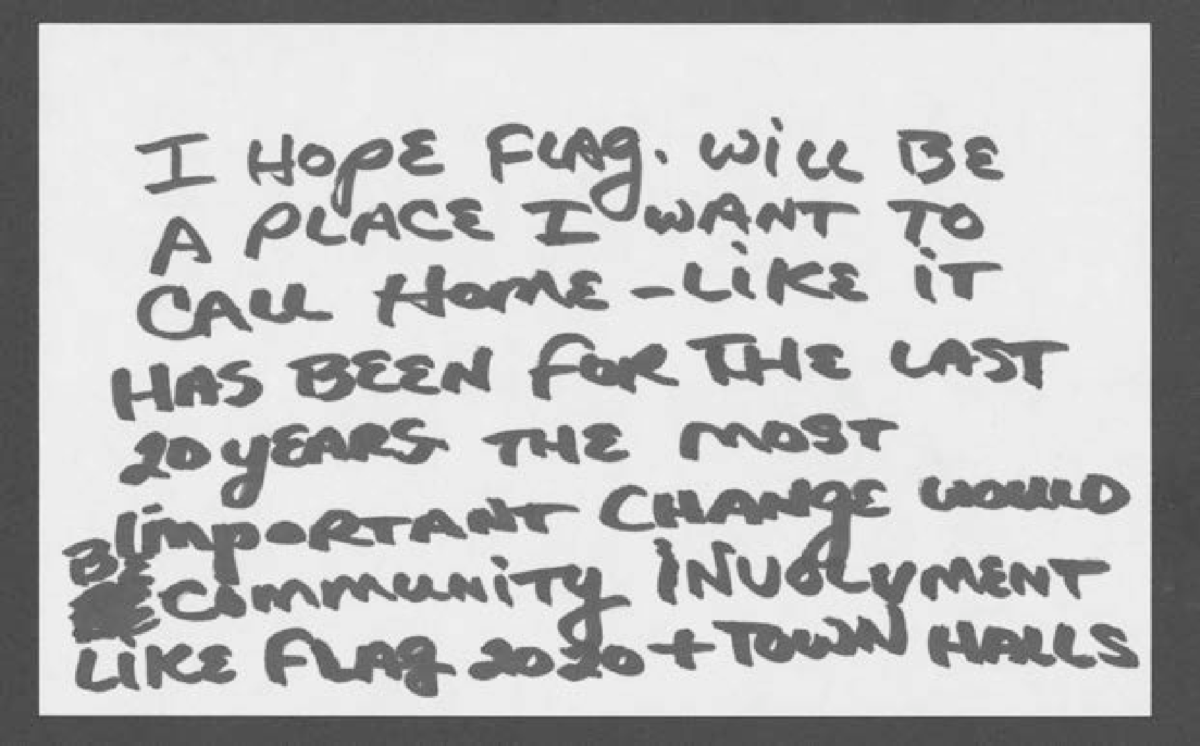 I HOPE FLAG. WILL BE
A PLACE I WANT TO
CALL HOME - LIKE IT
HAS BEEN FOR THE LAST
20 YEARS THE MOST
IMPORTANT CHANGE WOULD
BE COMMUNITY INVOLVMENT
LIKE FLAG 2020 + TOWN HALLS